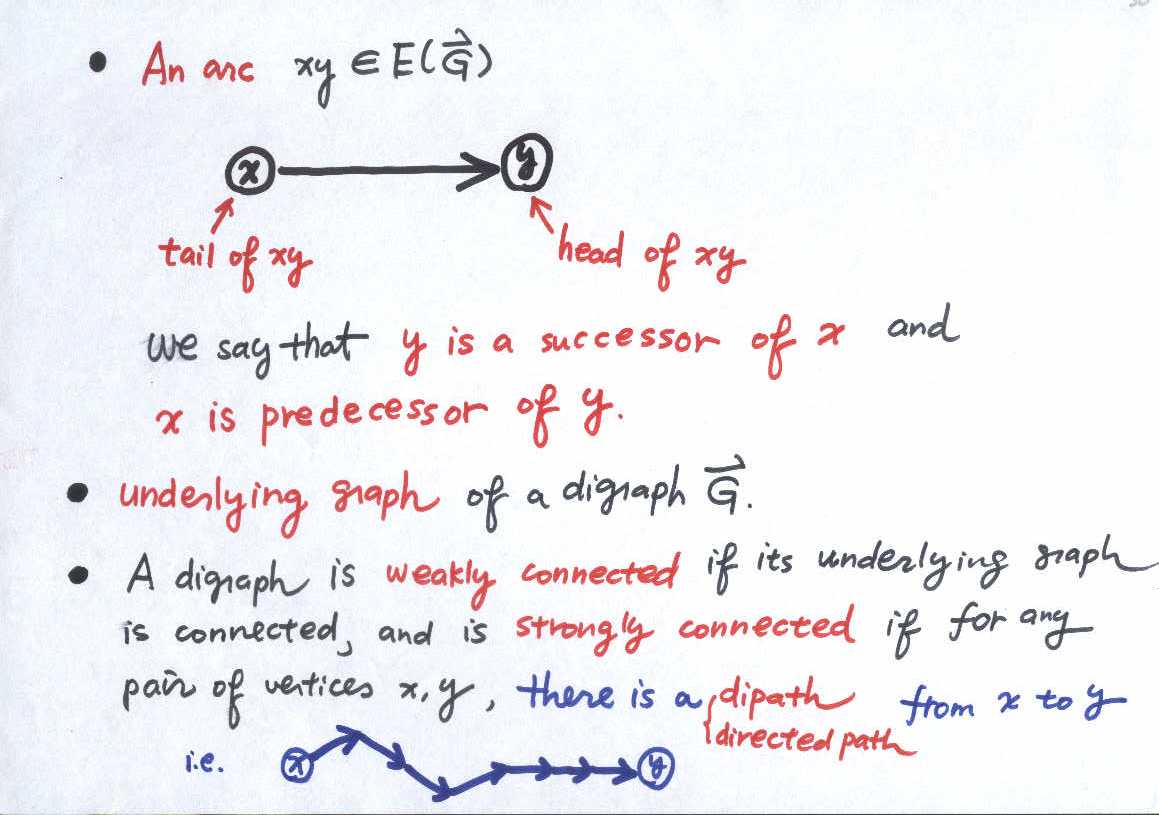 • An arc xy ∈ E(G⃗)
x y
tail of xy head of xy
we say that y is a successor of x and
x is predecessor of y.
• underlying graph of a digraph G⃗.
• A digraph is weakly connected if its underlying graph
is connected, and is strongly connected if for any
pair of vertices x, y, there is a dipath from x to y
directed path
i.e. x y